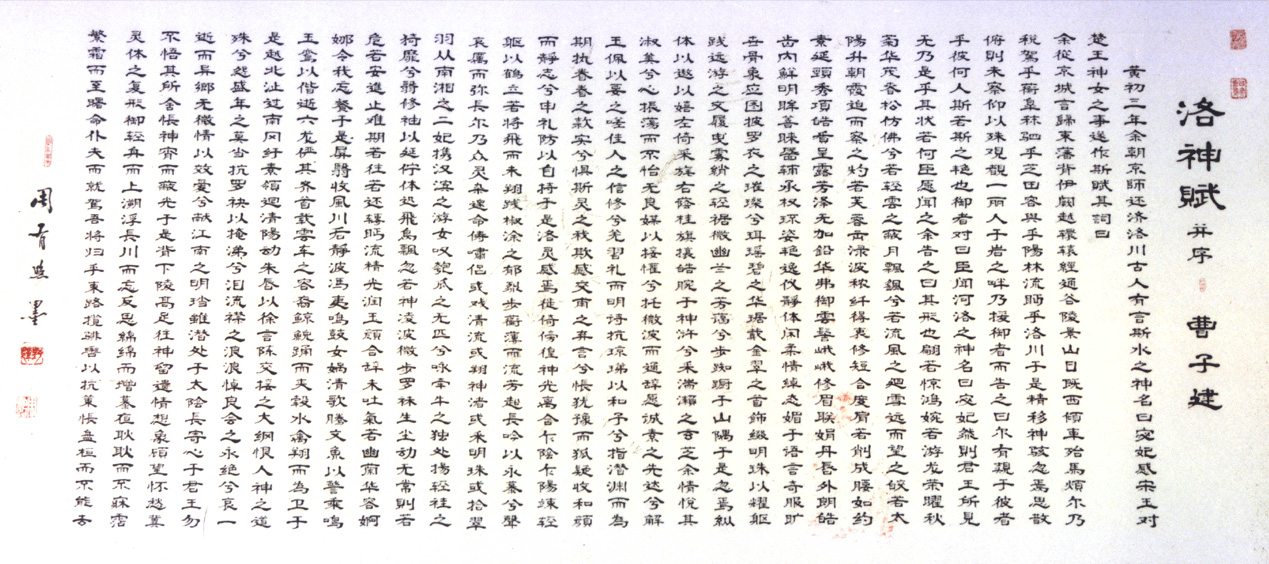 洛神賦 并序 曹子建
黄初三年余朝京师还济洛川古人有言斯水之神名曰宓妃感宋玉对
楚王神女之事遂作斯賦其詞曰
余從京城言歸東藩背伊闕越轘辕經通谷陵景山日既西傾車殆馬煩尔乃
税駕乎蘅皋秣驷乎芝田容與乎陽林流眄乎洛川于是精移神骇忽焉思散
俯則未察仰以殊观覩一丽人于岩之畔乃援御者而告之曰尔有覿于彼者
乎彼何人斯若斯之艳也御者对曰臣闻河洛之神名曰宓妃然則君王所見
无乃是乎其状若何臣愿闻之余告之曰其形也翩若惊鸿婉若游龙荣曜秋
菊华茂春松仿佛兮若轻雲之蔽月飄飖兮若流風之迴雪远而望之皎若太
陽升朝霞迫而察之灼若芙蓉出渌波秾纤得衷修短合度肩若削成腰如约
素延頸秀項皓質呈露芳泽无加鉛华弗御雲髻峨峨修眉联娟丹唇外朗皓
齿内鮮明眸善睐靨辅承权瓌姿艳逸仪静体闲柔情绰态媚于语言奇服旷
世骨象应图披罗衣之璀璨兮珥瑶碧之华琚戴金翠之首飾綴明珠以耀軀
践远游之文履曳霧绡之轻裾微幽兰之芳蔼兮步踟蹰于山隅于是忽焉纵
体以遨以嬉左倚采旄右蔭桂旗攘皓腕于神浒兮采湍濑之玄芝余情悦其
淑美兮心振荡而不怡无良媒以接懽兮托微波而通辞愿诚素之先达兮解
玉佩以要之嗟佳人之信修兮羌習礼而明诗抗琼珶以和予兮指潜渊而為
期执眷眷之款实兮惧斯灵之我欺感交甫之弃言兮怅犹豫而狐疑收和顔
而靜志兮申礼防以自持于是洛灵感焉徙倚傍徨神光离合乍陰乍陽竦轻
軀以鹤立若将飛而未翔践椒涂之郁烈步蘅薄而流芳超長吟以永慕兮聲
哀厲而弥長尔乃众灵杂遝命儔嘯侣或戏清流或翔神渚或采明珠或拾翠
羽从南湘之二妃携汉滨之游女叹匏瓜之无匹兮咏牵牛之独处扬轻袿之
猗靡兮翳修袖以延佇体迅飛凫飄忽若神凌波微步罗袜生尘动无常則若
危若安進止难期若往若还轉眄流精光润玉顔含辞未吐氣若幽蘭华容婀
娜令我忘餐于是屏翳收風川后静波冯夷鳴鼓女娲清歌腾文魚以警乘鳴
玉鸾以偕逝六龙俨其齐首載雲车之容裔鲸鲵踊而夹轂水禽翔而為卫于
是越北沚过南冈纡素領迴清陽动朱唇以徐言陈交接之大纲恨人神之道
殊兮怨盛年之莫当抗罗袂以掩涕兮泪流襟之浪浪悼良会之永绝兮哀一
逝而异鄉无微情以效爱兮献江南之明珰雖潜处于太陰長寄心于君王忽
不悟其所舍悵神宵而蔽光于是背下陵高足往神留遺情想象顧望怀愁冀
灵体之复形御轻舟而上溯浮長川而忘反思綿綿而增慕夜耿耿而不寐霑
繁霜而至曙命仆夫而就駕吾将归乎東路攬騑辔以抗策悵盘桓而不能去
周 墨